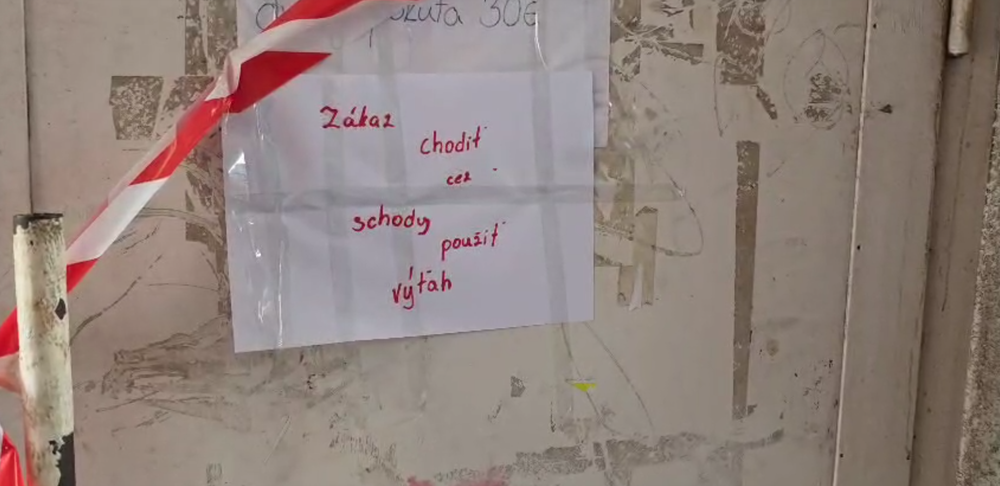 pokuta 30€
Zákaz
chodiť
cez
schody
použiť
výťah